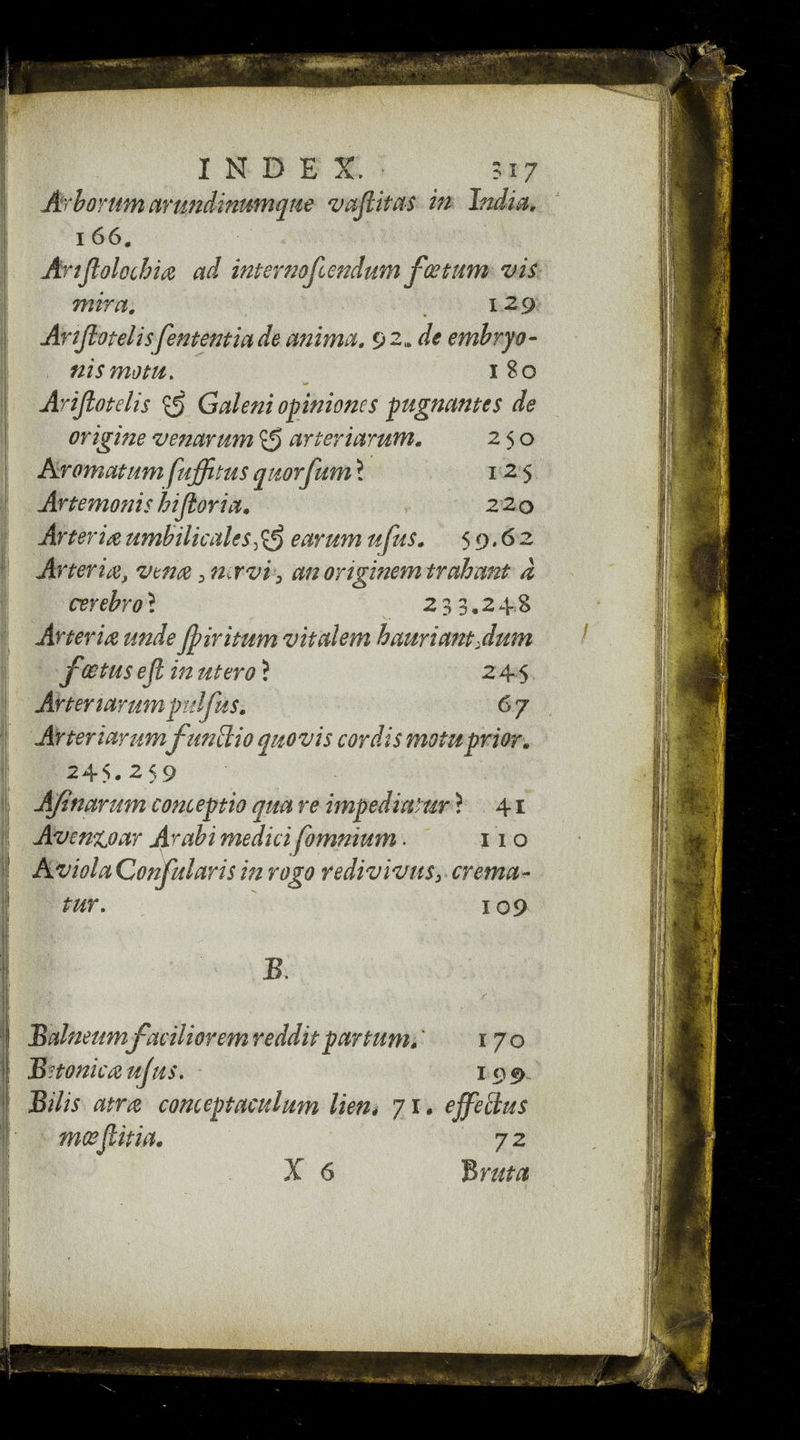 INDEX. 317
Arborum arundinumque vaſtitas in India.
166.
Ariſtolochiæ ad internoſcendum fœtum vis
mira. 129
Ariſtotelis ſententia de anima. 92. de embryo-
nis motu. 180
Ariſtotelis & Galeni opiniones pugnantes de
origine venarum & arteriarum. 250
Aromatum ſuffitus quorſum? 125
Artemonis hiſtoria. 220
Arteriæ umbilicales, & earum uſus. 59.62
Arteriæ, venæ, nervi, an originem trahant à
cerebro? 233.248
Arteriæ unde ſpiritum vitalem hauriant, dum
fœtus eſt in utero? 245
Arteriarum pulſus. 67
Arteriarum functio quovis cordis motu prior.
245.259
Aſinarum conceptio qua re impediatur? 41
Avenzoar Arabi medici ſomnium. 110
Aviola Conſularis in rogo redivivus, crema-
tur. 109
B.
Balneum faciliorem reddit partum. 170
Betonicæ uſus. 199
Bilis atræ conceptaculum lien. 71. effectus
mœſtitia. 72
X 6 Bruta